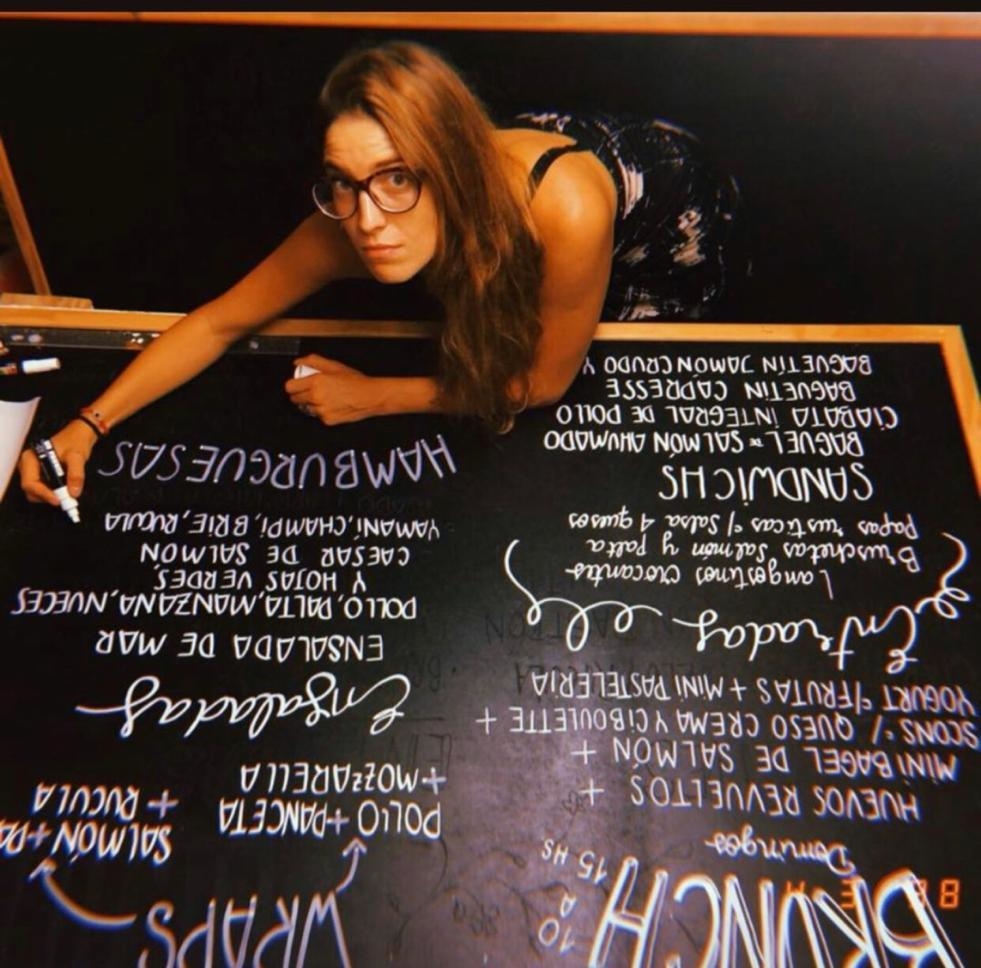 BRUNCH
10 A 15 HS
Domingos
HUEVOS REVUELTOS +
MINI BAGEL DE SALMÓN +
SCONS c/ QUESO CREMA Y CIBOULETTE +
YOGURT c/FRUTAS + MINI PASTELERIA
Entradas
Langostinos crocantes
Bruschetas salmón y palta
papas rusticas c/ salsa 4 quesos
SANDWICHS
BAGUEL SALMÓN AHUMADO
CIABATA INTEGRAL DE POLLO
BAGUETIN CAPRESSE
BAGUETÍN JAMÓN CRUDO Y
WRAPS
POLLO + PANCETA
+ MOZZARELLA
SALMÓN +
+ RUCULA
Ensaladas
ENSALADA DE MAR
POLLO, PALTA, MANZANA, NUECES
Y HOJAS VERDES
CAESAR DE SALMON
YAMANÍ, CHAMPI, BRIE, RUCULA
HAMBURGUESAS